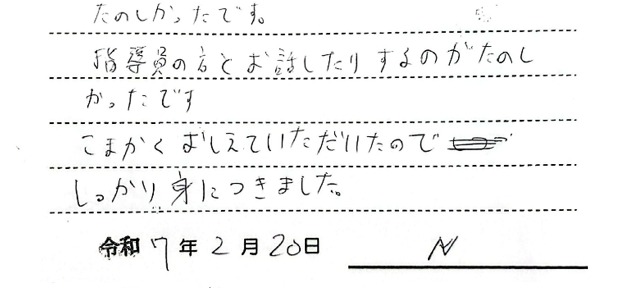 たのしかったです。
指導員の方とお話したりするのがたのし
かったです
こまかくおしえていただいたので
しっかり身につきました。
令和7年2月20日 N